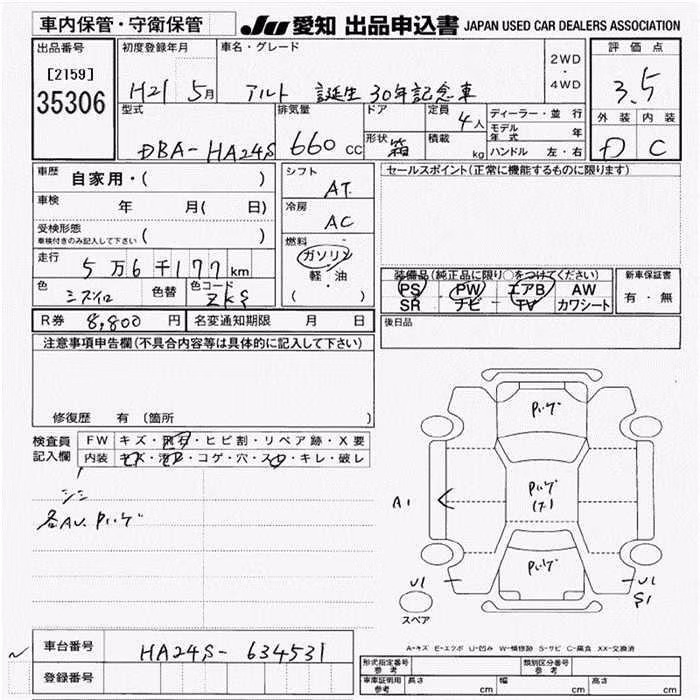 車内保管・守衛保管
JU 愛知 出品申込書 JAPAN USED CAR DEALERS ASSOCIATION
出品番号
[2159]
35306
初度登録年月
H21 5月
車名・グレード
アルト 誕生 30年記念車
2WD
・
4WD
評価点
3.5
外装 内装
D C
型式
DBA-HA24S
排気量
660 cc
ドア
形状 箱
定員 4人
積載 kg
ディーラー・並行
モデル年式 年
ハンドル 左・右
車歴
自家用・( )
車検
年 月( 日)
受検形態
車検付きのみ記入して下さい ( )
走行
5万6千177km
色
色替
色コード
ZKS
シフト
AT
冷房
AC
燃料
ガソリン
軽・油
( )
セールスポイント(正常に機能するものに限ります)
装備品(純正品に限り○をつけてください)
PS PW エアB AW
SR ナビ TV カワシート
新車保証書
有・無
後日品
R券 8,800 円 名変通知期限 月 日
注意事項申告欄(不具合内容等は具体的に記入して下さい)
修復歴 有 (箇所 )
検査員
記入欄
FW キズ・飛石・ヒビ割・リペア跡・X要
内装 キズ・汚れ・コゲ・穴・スレ・キレ・破レ
A1
U1
U1
S1
スペア
A-キズ E-エクボ U-凹み W-補修跡 S-サビ C-腐食 XX-交換済
車台番号 HA24S-634531
登録番号
形式指定番号
参考
類別区分番号
参考
車庫証明用
参考
長さ cm 幅 cm 高さ cm